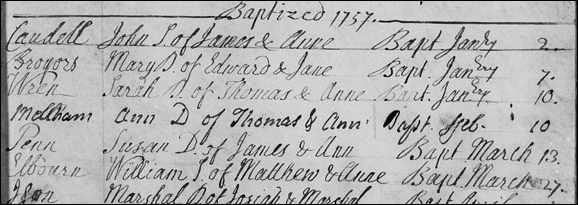 Baptized 1757.
Caudell John S. of James & Anne Bapt Janry 2.
Brogors Mary D. of Edward & Jane Bapt. Janery 7.
Wren Sarah D. of Thomas & Anne Bapt. Janery 10.
Mellham Ann D of Thomas & Ann Bapt. Feb. 10
Penn Susan D. of James & Ann Bapt March 13.
Elbourn William S. of Matthew & Anne Bapt. March 27.
Marshal D of Josiah & Marshal Bapt April